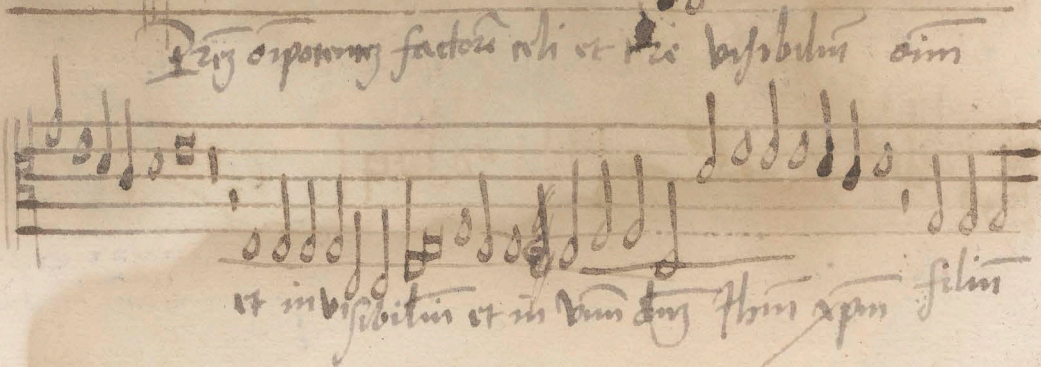 Prēꝫ oīpotenteꝫ factorē celi et tre visibiliū oīm
et invisibiliū et in vnū dnꝫ Jhm xpm filiū